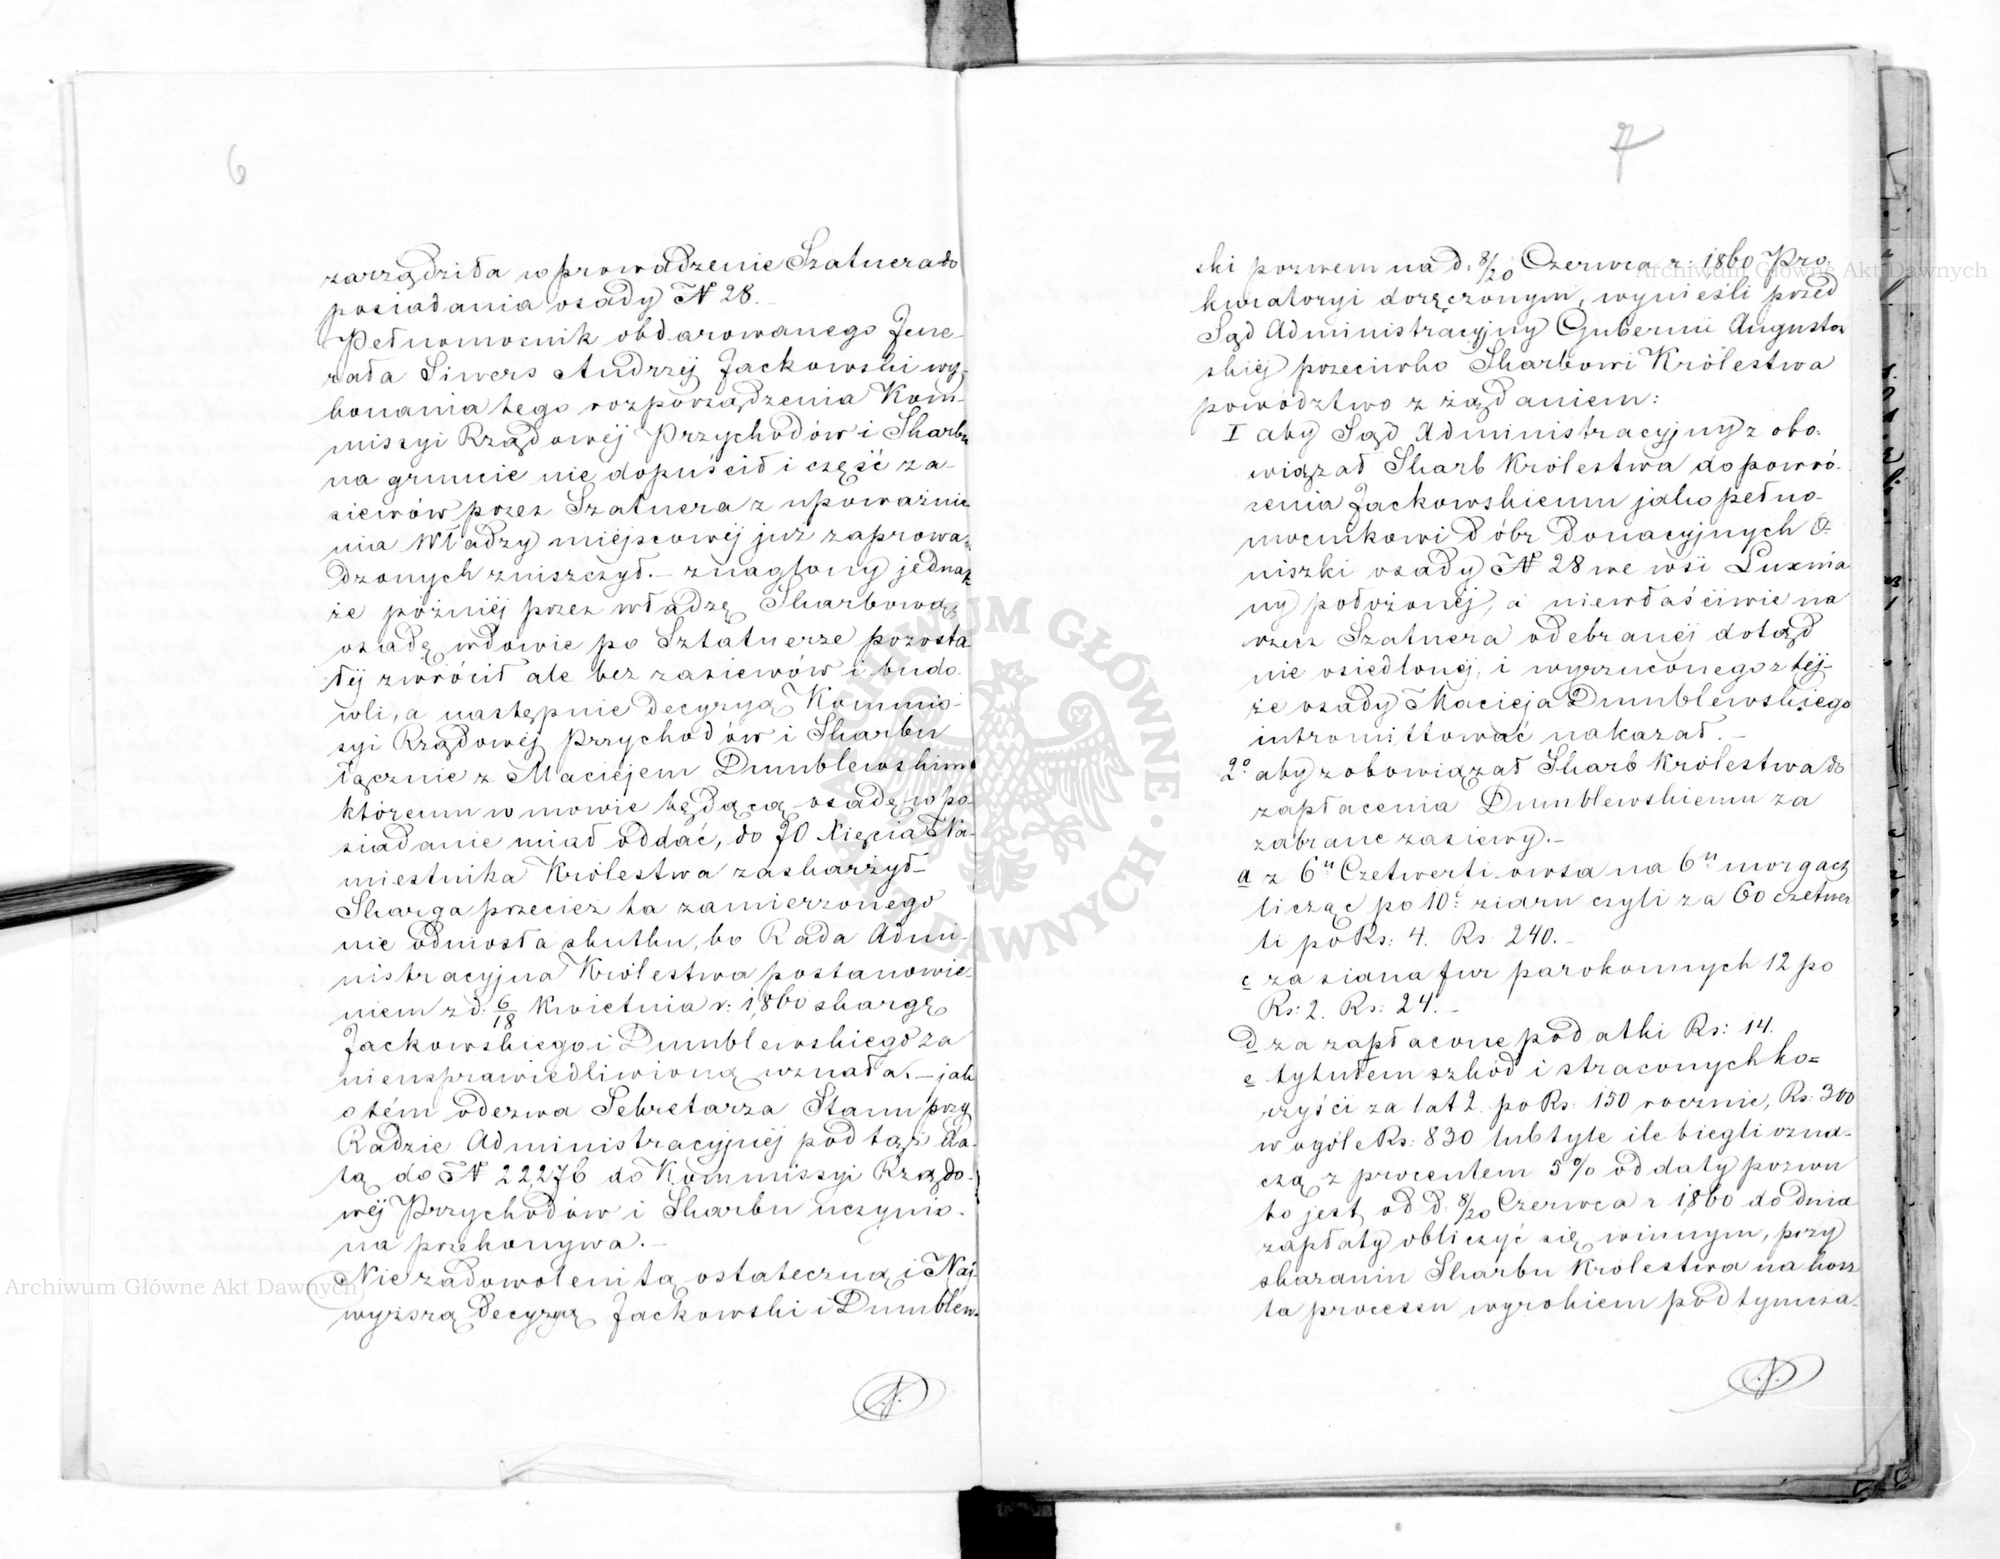 6
zarządziła wprowadzenie Szatnera do
posiadania osady N 28.
Pełnomocnik obdarowanego Jene-
rała Siwers Andrzéj Jackowski wy-
konania tego rozporządzenia Kom-
missyi Rządowéj Przychodów i Skarbu
na gruncie nie dopuścił i część za-
siewów przez Szatnera z upoważnie
nia Władzy miéjscowéj już zaprowa-
dzonych zniszczył. – znaglony jednak
że późniéj przez władzę Skarbową,
osadę wdowie po Sztatnerze pozosta
łéj zwrócił ale bez zasiewów i budo-
wli, a następnie decyzyą Kommis-
syi Rządowéj Przychodów i Skarbu
łącznie z Maciéjem Dumblewskim
któremu w mowie będącą osadę w po-
siadanie miał oddać, do JO Xięcia Na-
miestnika Królestwa zaskarżył –
Skarga przecież ta zamierzonego
nie odniosła skutku, bo Rada Admi-
nistracyjna Królestwa postanowie-
niem z d. 6/18 Kwietnia r: 1,860 skargę
Jackowskiego i Dumblewskiego za
nieusprawiedliwioną uznała. – jak
o tém odezwa Sekretarza Stanu przy
Radzie Administracyjnéj pod tąż da-
tą do N 22,276 do Kommissyi Rządo-
wéj Przychodów i Skarbu uczynio-
na przekonywa. –
Nie zadowoleni tą ostateczną i Naj-
wyższą decyzyą Jackowski i Dumblew-
7
ski pozwem na d. 8/20 Czerwca r: 1860 Pro
kuratoryi doręczonym, wynieśli przed
Sąd Administracyjny Gubernii Augustow
skiéj przeciwko Skarbowi Królestwa
powództwo z żądaniem:
I aby Sąd Administracyjny zobo-
wiązał Skarb Królestwa do powró-
cenia Jackowskiemu jako pełno-
mocnikowi dóbr Donacyjnych O-
niszki osady N 28 we wsi Luxnia
ny położonéj, a niewłaściwie na
rzecz Szatnera odebranéj dotąd
nie osiedlonéj, i wyrzuconego z téj-
że osady Macieja Dumblewskiego
intromittować nakazał. –
2° aby zobowiązał Skarb Królestwa do
zapłacenia Dumblewskiemu za
zabrane zasiewy. –
a z 6u Czetwerti owsa na 6u morgach
licząc po 10é ziarn czyli za 60 czetwer
ti po Rs: 4. Rs: 240. –
c za siana fur parokonnych 12 po
Rs: 2. Rs: 24. –
d za zapłacone podatki Rs: 14.
e tytułem szkód i straconych ko=
rzyści za lat 2. po Rs: 150 rocznie, Rs: 300
w ogóle Rs: 830 lub tyle ile biegli ozna-
czą z procentem 5 % od daty pozwu
to jest od d. 8/20 Czerwca r 1,860 do dnia
zapłaty obliczyć się winnym, przy
skazaniu Skarbu Królestwa na kosz
ta processu wyrokiem pod tymcza-
Archiwum Główne Akt Dawnych
Archiwum Główne Akt Dawnych
ARCHIWUM GŁÓWNE AKT DAWNYCH